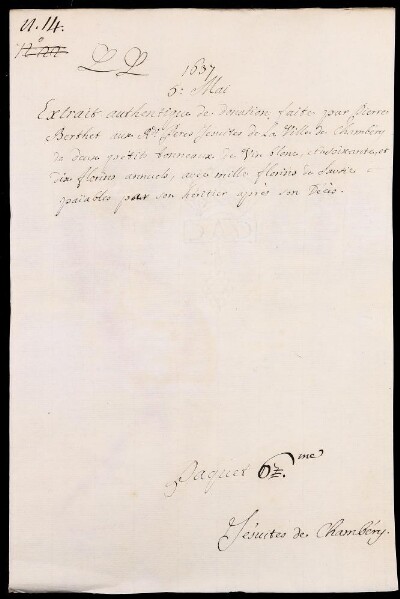 n. 14.
PP
1637
6. Mai
Extrait authentique de donation, faite par Pierre
Berthet aux Rds Peres Jesuites de La Ville de Chambery
de deux petits tonneaux de Vin blanc, et soixante, et
dix florins annuels, avec mille florins de Savoie
païables par son héritier après son Décès.
Paquet 6me
Jésuites de Chambéry.